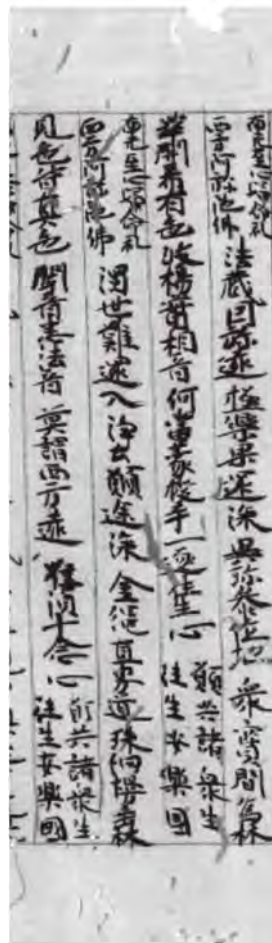 南无至心歸命礼
西方阿弥陁佛
法藏因弥遠 極樂果還深 異弥叅作地 衆寶間為林
華開希有色 波楊實相音 何當蒙授手 一遂往生心
願共諸衆生
往生安樂國
南无至心歸命礼
西方阿弥陁佛
濁世難還入 淨土願逾深 金繩直界道 珠網縵垂林
見色皆真色 聞音悉法音 莫謂西方遠 唯須十念心
願共諸衆生
往生安樂國